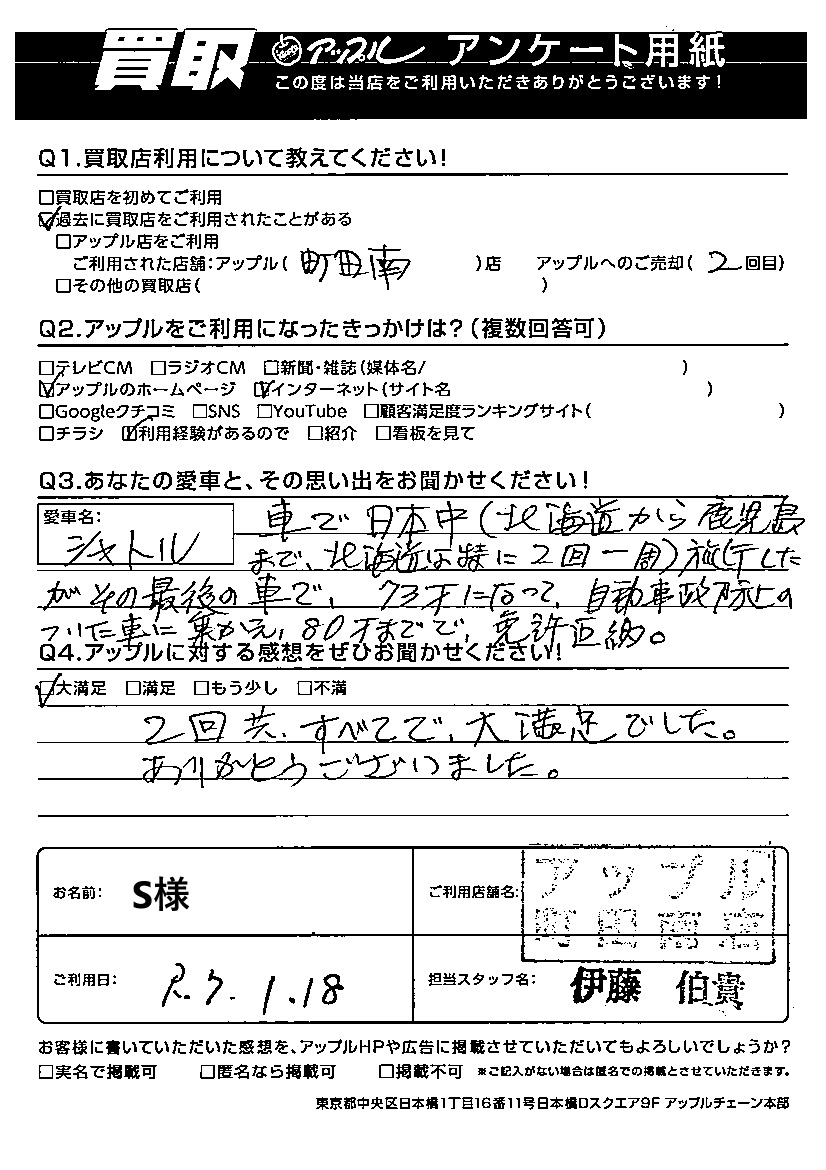 買取 アップル アンケート用紙
この度は当店をご利用いただきありがとうございます！
Q1.買取店利用について教えてください！
□買取店を初めてご利用
☑過去に買取店をご利用されたことがある
□アップル店をご利用
ご利用された店舗：アップル( 町田南 )店 アップルへのご売却( 2回目)
□その他の買取店( )
Q2.アップルをご利用になったきっかけは？(複数回答可)
□テレビCM □ラジオCM □新聞・雑誌(媒体名/ )
☑アップルのホームページ ☑インターネット(サイト名 )
□Googleクチコミ □SNS □YouTube □顧客満足度ランキングサイト( )
□チラシ ☑利用経験があるので □紹介 □看板を見て
Q3.あなたの愛車と、その思い出をお聞かせください！
愛車名：
シャトル
車で日本中(北海道から鹿児島
まで、北海道は特に2回一周)旅行した
がその最後の車で、73才になって、自動車
ついた車に乗かえ、80才までで、免許返納。
Q4.アップルに対する感想をぜひお聞かせください！
☑大満足 □満足 □もう少し □不満
2回共、すべてで、大満足でした。
ありがとうございました。
お名前： S様
ご利用店舗名： アップル
町田南店
ご利用日： R.7.1.18
担当スタッフ名： 伊藤 伯貴
お客様に書いていただいた感想を、アップルHPや広告に掲載させていただいてもよろしいでしょうか？
□実名で掲載可 □匿名なら掲載可 □掲載不可 ※ご記入がない場合は匿名での掲載とさせていただきます。
東京都中央区日本橋1丁目16番11号日本橋Dスクエア9F アップルチェーン本部